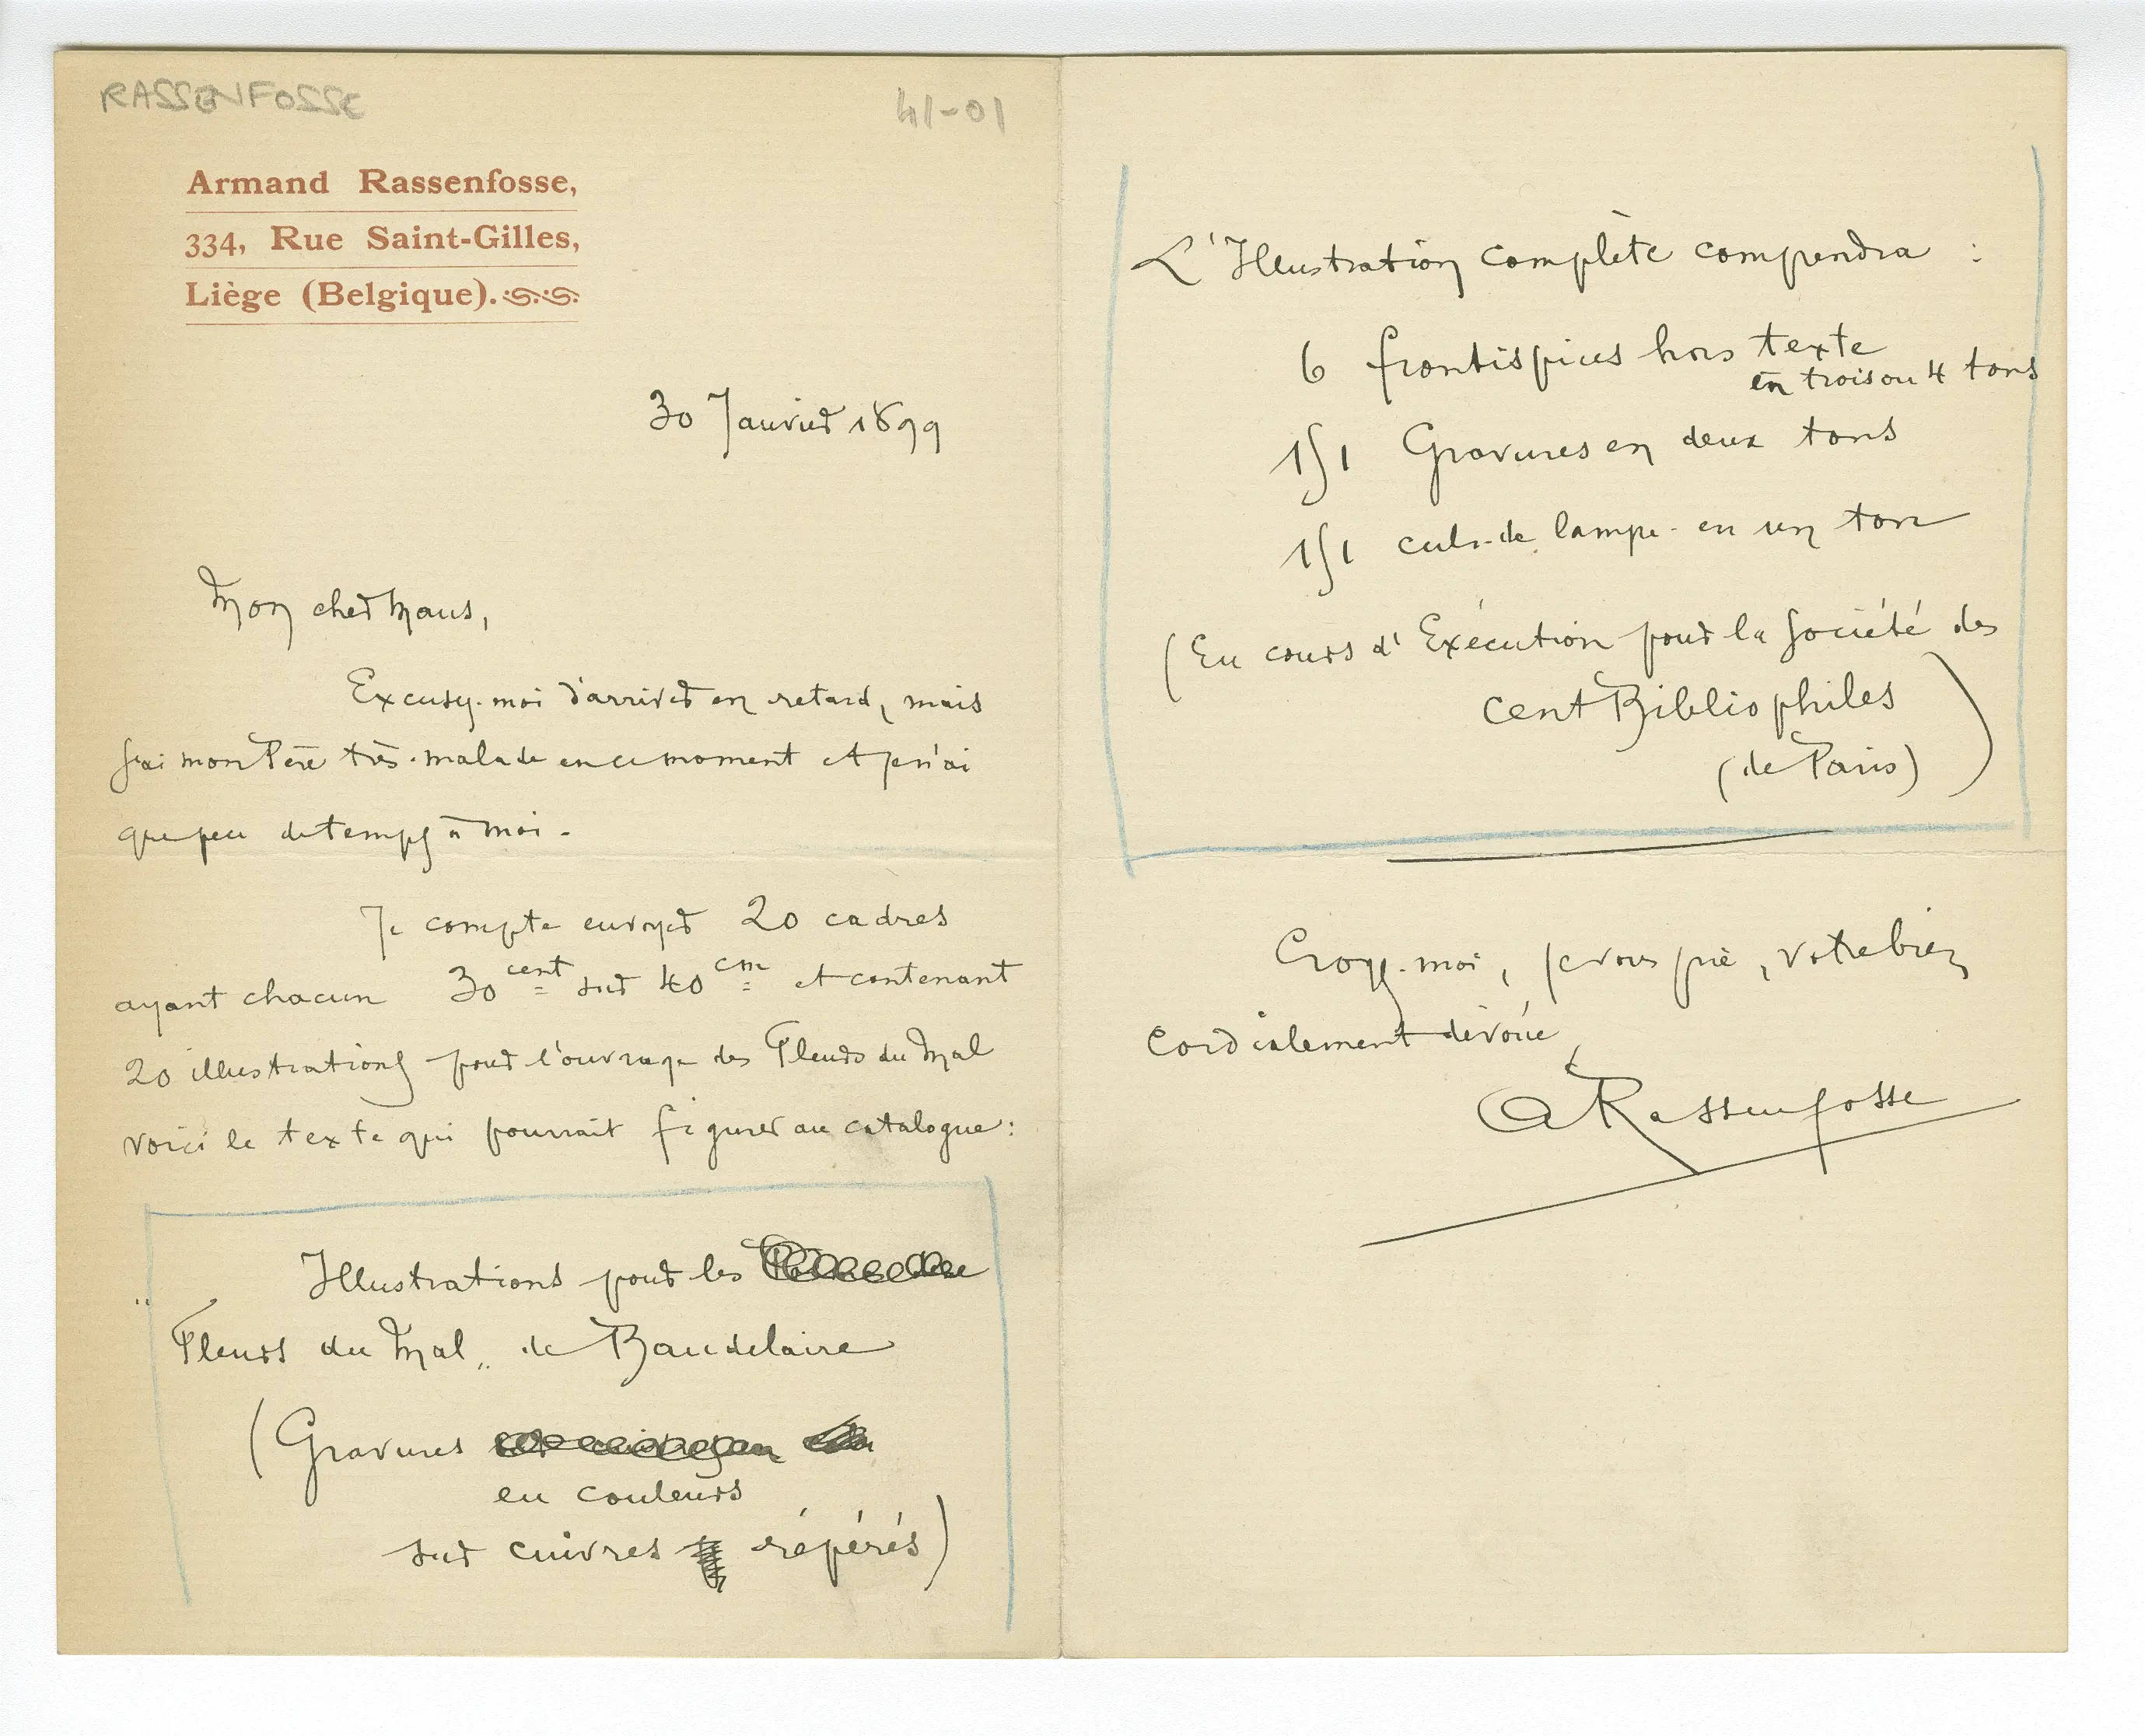 RASSENFOSSE
41-01
Armand Rassenfosse,
334, Rue Saint-Gilles,
Liège (Belgique).
30 Janvier 1899
Mon cher Maus,
Excusez-moi d'arriver en retard, mais
j'ai mon Père très-malade en ce moment et je n'ai
que peu de temps à moi.
Je compte envoyer 20 cadres
ayant chacun 30 cent sur 40 cm et contenant
20 illustrations pour l'ouvrage des Fleurs du Mal
voici le texte qui pourrait figurer au catalogue :
Illustrations pour les
"Fleurs du Mal" de Baudelaire
(Gravures
en couleurs
sur cuivres répérés)
L'Illustration complète comprendra :
6 frontispices hors texte
en trois ou 4 tons
151 Gravures en deux tons
151 culs-de lampe - en un ton
(En cours d'Exécution pour la Société des
Cent Bibliophiles
(de Paris)
)
Croyez-moi, je vous prie, votre bien
cordialement dévoué
ARassenfosse